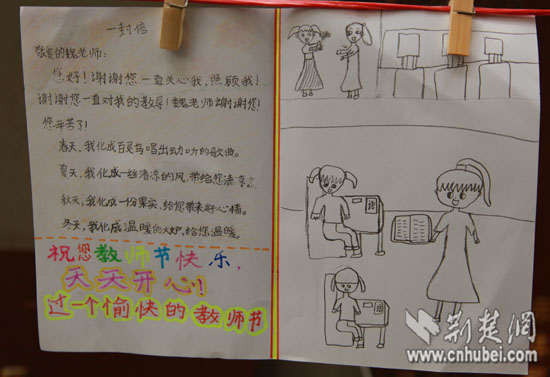 一封信
敬爱的魏老师：
您好！谢谢您一直关心我，照顾我！
谢谢您一直对我的教导！魏老师谢谢您！
您辛苦了！
春天，我化成百灵鸟唱出动听的歌曲。
夏天，我化成一丝清凉的风，带给您清凉。
秋天，我化成一份果实，给您带来好心情。
冬天，我化成温暖的火炉，给您温暖。
祝您教师节快乐，
天天开心！
过一个愉快的教师节
荆楚网
www.cnhubei.com